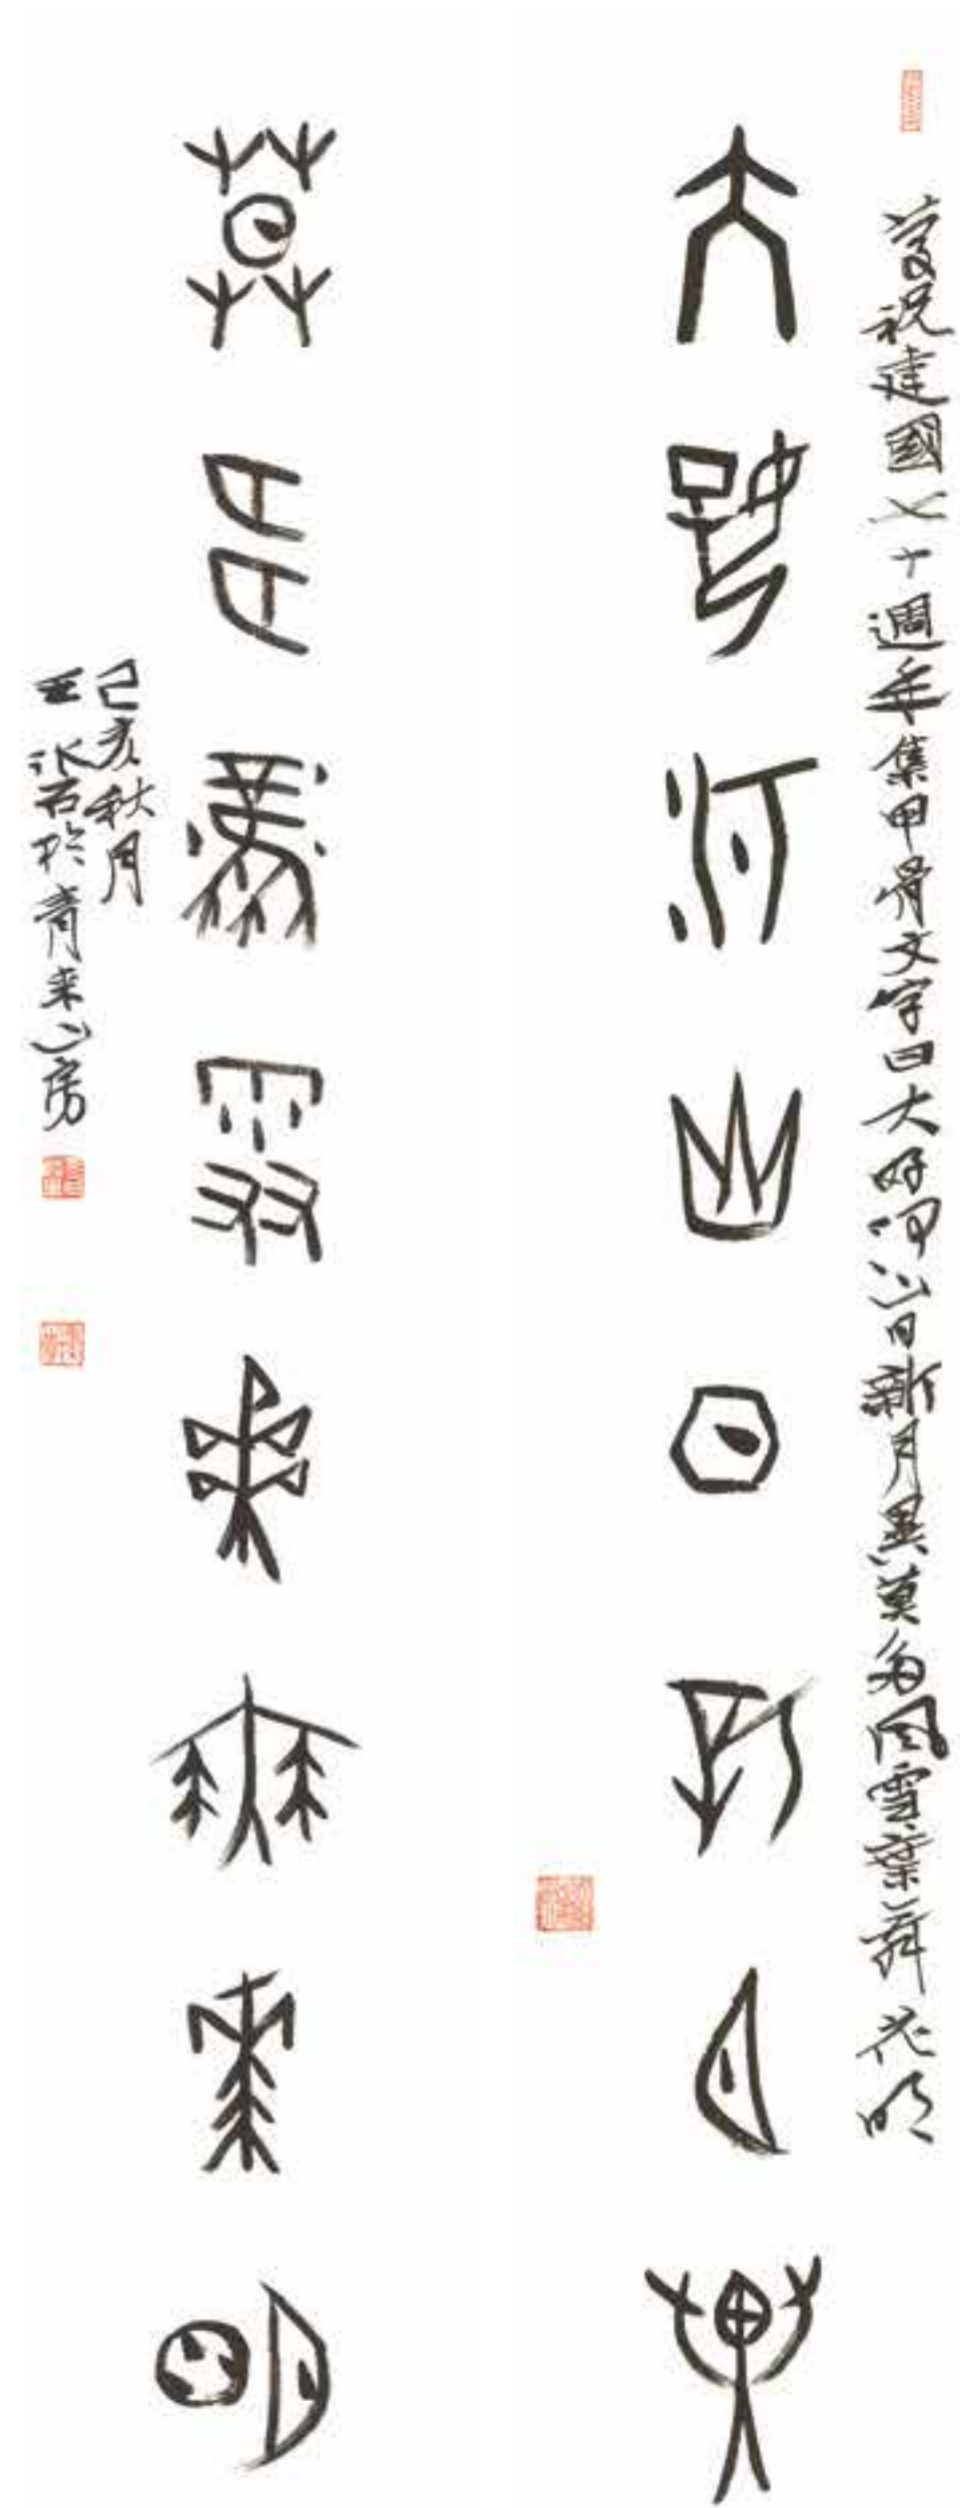 慶祝建國七十週年集甲骨文字曰大好河山日新月異莫多風雪葉舞花明
大好河山日新月異
莫多風雪葉舞花明
己亥秋月
王冰石於青来山房